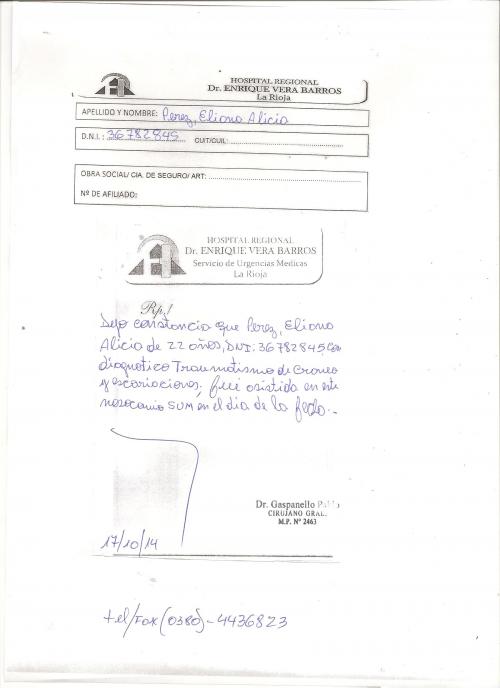 HOSPITAL REGIONAL
Dr. ENRIQUE VERA BARROS
La Rioja
APELLIDO Y NOMBRE: Perez, Eliana Alicia
D.N.I.: 36782845 CUIT/CUIL:
OBRA SOCIAL/ CIA. DE SEGURO/ ART:
Nº DE AFILIADO:
HOSPITAL REGIONAL
Dr. ENRIQUE VERA BARROS
Servicio de Urgencias Medicas
La Rioja
Rp./
Dejo constancia que Perez, Eliana
Alicia de 22 años, DNI: 36782845 con
diagnotico Traumatismo de Craneo
y escoriaciones, fué asistida en este
nosocomio SUM en el dia de la fecha.-
Dr. Gaspanello Pablo
CIRUJANO GRAL.
M.P. Nº 2463
17/10/14
tel/Fax (0380)-4436823